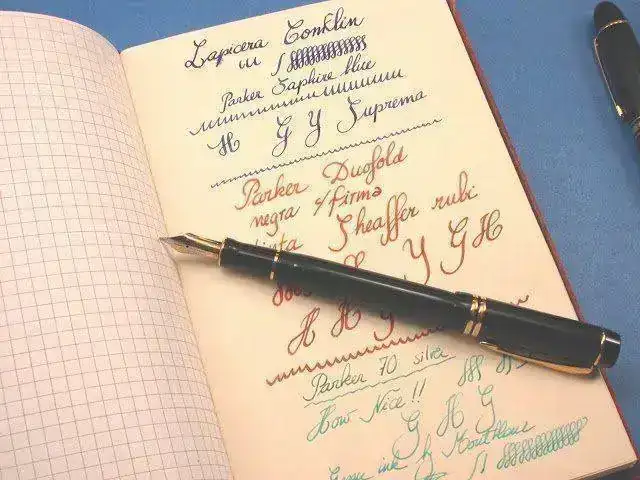 Lapicera Conklin
Parker Saphire blue
H G Y Suprema
Parker Duofold
negra c/firma
tinta Sheaffer rubi
Y G H
H H Y
Parker 70 silver
How Nice!!
G H G
Green ink by Montblanc